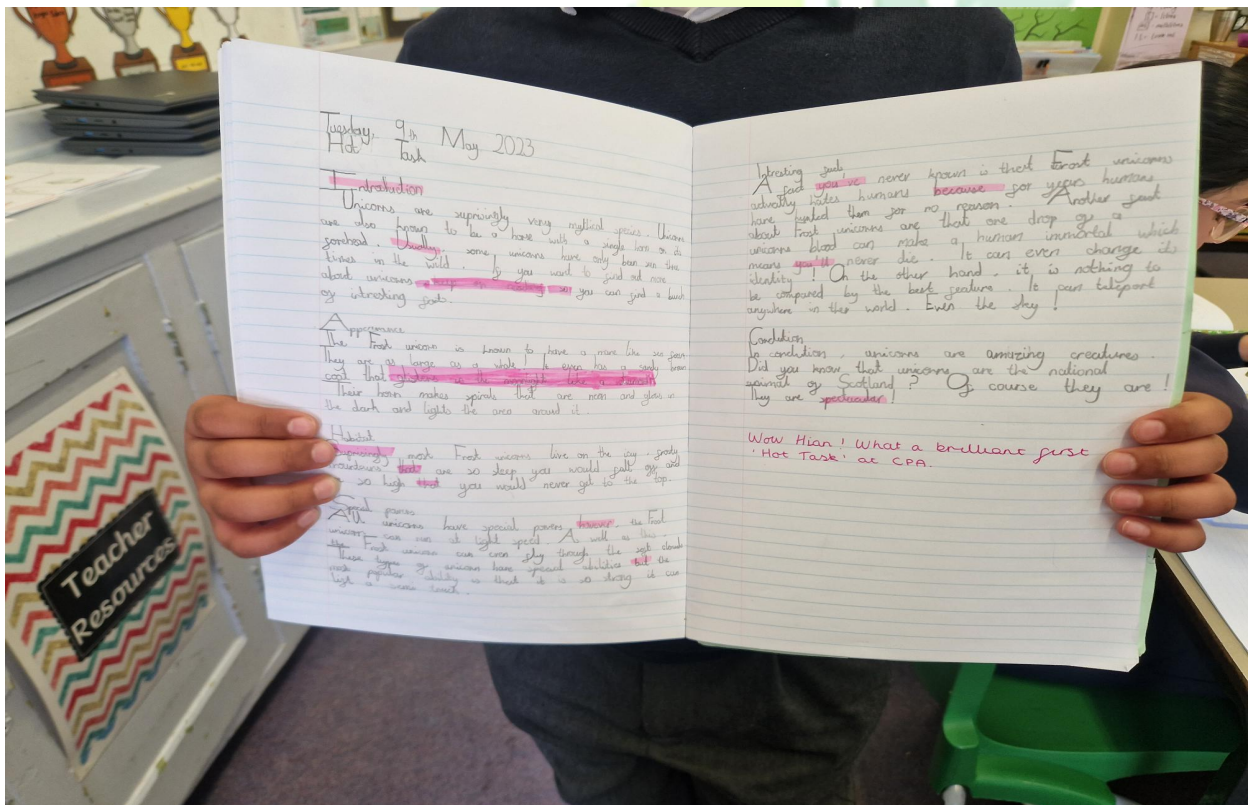 Tuesday, 9th May 2023
Hot Task
Introduction
Unicorns are suprisingly very mythical species. Unicorns
are also known to be a horse with a single horn on its
forehead. Usually, some unicorns have only been seen three
times in the wild. If you want to find out more
about unicorns keep on reading so you can find a bunch
of intresting facts.
Appearance
The Frost unicorn is known to have a mane like sea foam
They are as large as a whale. It even has a sandy brown
coat that in the moonlight like a diamond.
Their horn makes spirals that are neon and glows in
the dark and lights the area around it.
Habitat
Suprisingly most Frost unicorns live on the icy - frosty
mountains that are so steep you would fall off and
so high that you would never get to the top.
Special powers
All unicorns have special powers however, the Frost
unicorn can run at light speed. As well as this
the Frost unicorn can even fly through the soft clouds
These types of unicorn have special abilities but the
most popular ability is that it is so strong it can
lift a
Intresting facts
A fact you've never known is that Frost unicorns
actually hates humans because for years humans
have hunted them for no reason. Another fact
about Frost unicorns are that one drop of a
unicorns blood can make a human immortal which
means you'll never die. It can even change its
identity. On the other hand, it is nothing to
be compared by the best feature. It can teleport
anywhere in ther world. Even the sky!
Conclution
In conclution, unicorns are amazing creatures
Did you know that unicorns are the national
animal of Scotland? Of course they are!
They are spectacular!
Wow Hian! What a brilliant first
'Hot Task' at CPA.
Teacher
Resources